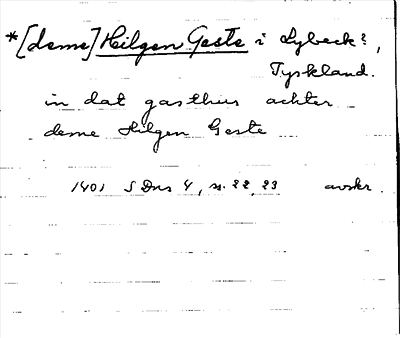 *[deme] Hilgen Geste i Lybeck?,
Tyskland.
in dat gasthus achter
deme Hilgen Geste
1401 SDns 4, s. 22, 23 avskr.